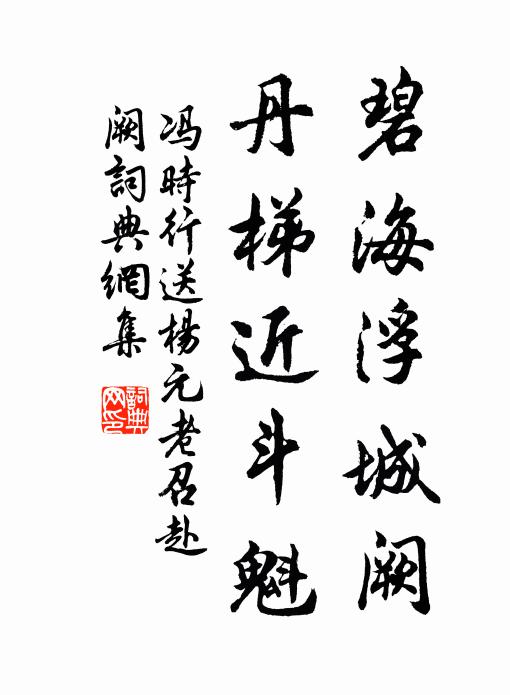 碧海浮城阙
丹梯近斗魁
冯時行送楊元老召赴
阙詞典網集
詞典
网印